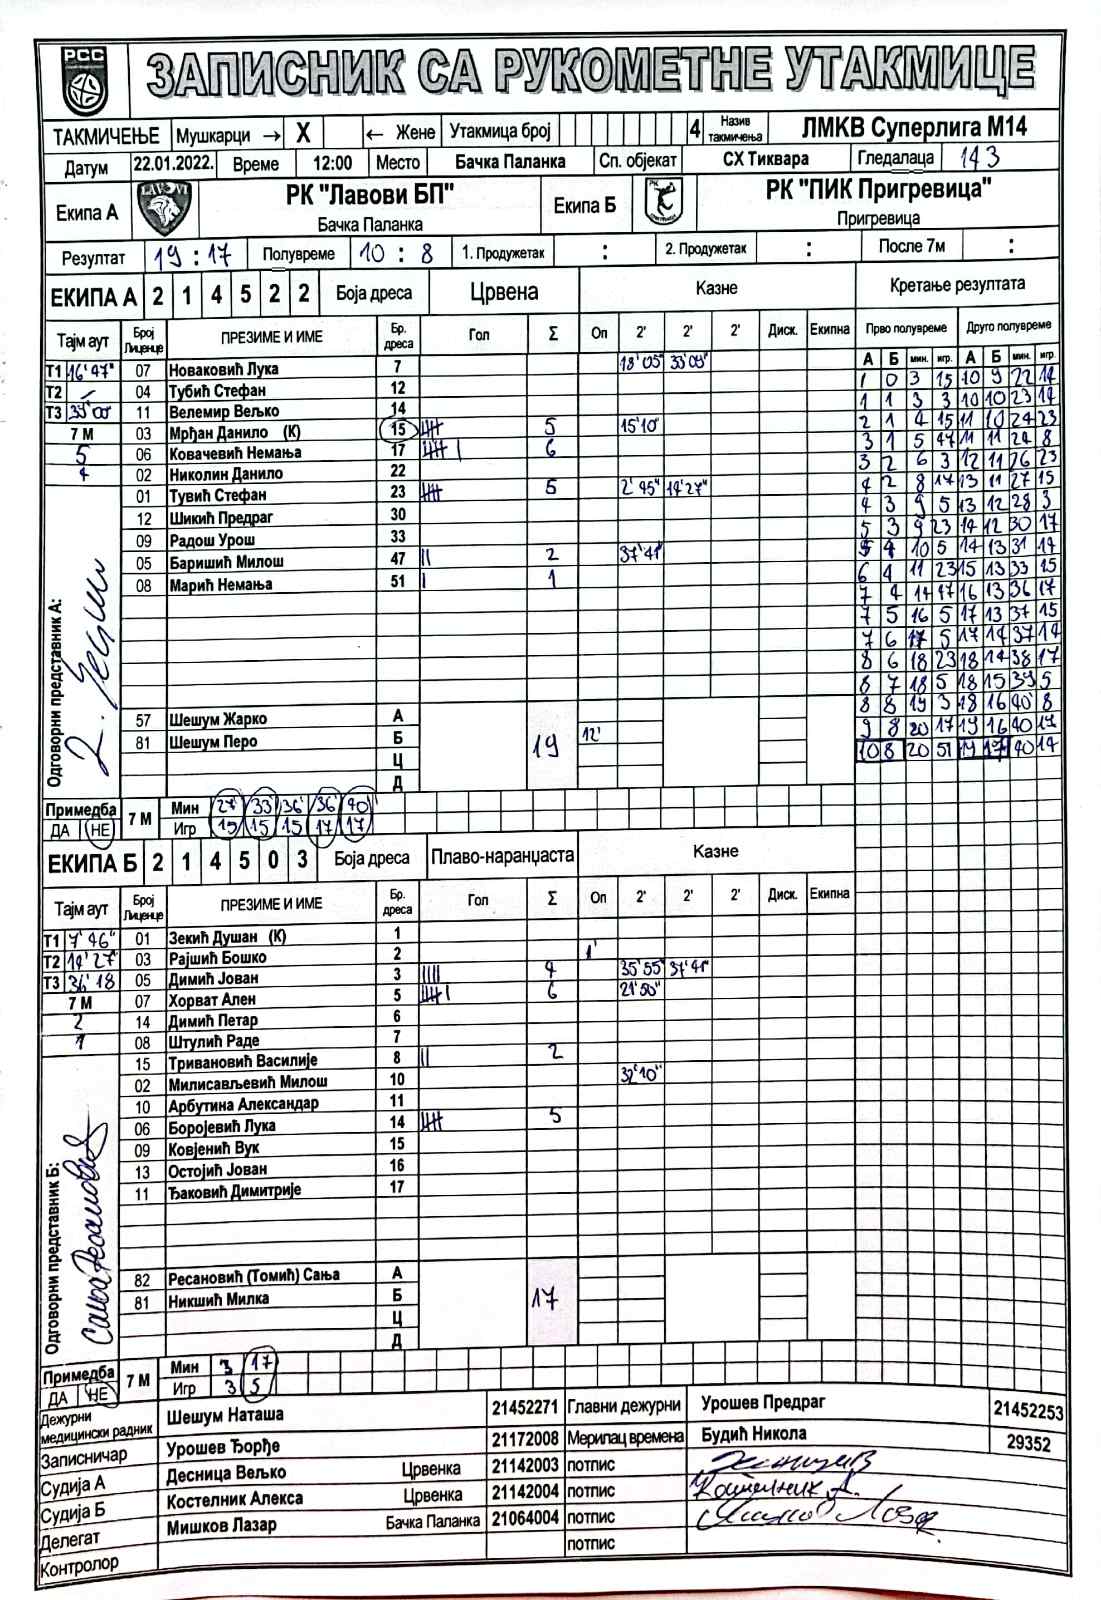 РСС
ЗАПИСНИК СА РУКОМЕТНЕ УТАКМИЦЕ
ТАКМИЧЕЊЕ Мушкарци → X ← Жене Утакмица број 4 Назив такмичења ЛМКВ Суперлига М14
Датум 22.01.2022. Време 12:00 Место Бачка Паланка Сп. објекат СХ Тиквара Гледалаца 143
Екипа А РК "Лавови БП" Бачка Паланка Екипа Б РК "ПИК Пригревица" Пригревица
Резултат 19 : 17 Полувреме 10 : 8 1. Продужетак : 2. Продужетак : После 7м :
ЕКИПА А 2 1 4 5 2 2 Боја дреса Црвена Казне Кретање резултата
Тајм аут Број Лиценце ПРЕЗИМЕ И ИМЕ Бр. дреса Гол Σ Оп 2' 2' 2' Диск. Екипна Прво полувреме Друго полувреме
А Б мин. игр. А Б мин. игр.
Т1 16'47" 07 Новаковић Лука 7 18'05" 33'09" 1 0 3 15 10 9 22 14
Т2 / 04 Тубић Стефан 12 1 1 3 3 10 10 23 14
Т3 39'00 11 Велемир Вељко 14 2 1 4 15 11 10 24 23
7 М 03 Мрђан Данило (К) 15 5 15'10" 3 1 5 47 11 11 24 8
5 06 Ковачевић Немања 17 6 3 2 6 3 12 11 26 23
4 02 Николин Данило 22 4 2 8 17 13 11 27 15
01 Тувић Стефан 23 5 2'45" 14'27" 4 3 9 5 13 12 28 3
12 Шикић Предраг 30 5 3 9 23 14 12 30 17
09 Радош Урош 33 5 4 10 5 14 13 31 14
05 Баришић Милош 47 2 37'41" 6 4 11 23 15 13 33 15
08 Марић Немања 51 1 7 4 14 47 16 13 36 17
7 5 16 5 17 13 37 15
7 6 17 5 17 14 37 14
8 6 18 23 18 14 38 17
8 7 18 5 18 15 39 5
Одговорни представник А:
57 Шешум Жарко А 8 8 19 3 18 16 40 8
81 Шешум Перо Б 19 12' 9 8 20 17 19 16 40 17
Ц 10 8 20 51 19 17 40 14
Д
Примедба 7 М Мин 27' 33' 36' 36' 40'
ДА НЕ Игр 15 15 15 17 17
ЕКИПА Б 2 1 4 5 0 3 Боја дреса Плаво-наранџаста Казне
Тајм аут Број Лиценце ПРЕЗИМЕ И ИМЕ Бр. дреса Гол Σ Оп 2' 2' 2' Диск. Екипна
Т1 7'46" 01 Зекић Душан (К) 1
Т2 14'27" 03 Рајшић Бошко 2 1'
Т3 36'18 05 Димић Јован 3 4 35'55" 37'41"
7 М 07 Хорват Ален 5 6 21'50"
2 14 Димић Петар 6
1 08 Штулић Раде 7
15 Тривановић Василије 8 2
02 Милисављевић Милош 10 32'10"
10 Арбутина Александар 11
06 Боројевић Лука 14 5
09 Ковјенић Вук 15
13 Остојић Јован 16
11 Ђаковић Димитрије 17
Одговорни представник Б:
82 Ресановић (Томић) Сања А
81 Никшић Милка Б 17
Ц
Д
Примедба 7 М Мин 3 17
ДА НЕ Игр 3 5
Дежурни медицински радник Шешум Наташа 21452271 Главни дежурни Урошев Предраг 21452253
Записничар Урошев Ђорђе 21172008 Мерилац времена Будић Никола 29352
Судија А Десница Вељко Црвенка 21142003 потпис
Судија Б Костелник Алекса Црвенка 21142004 потпис Костелник А.
Делегат Мишков Лазар Бачка Паланка 21064004 потпис
Контролор потпис